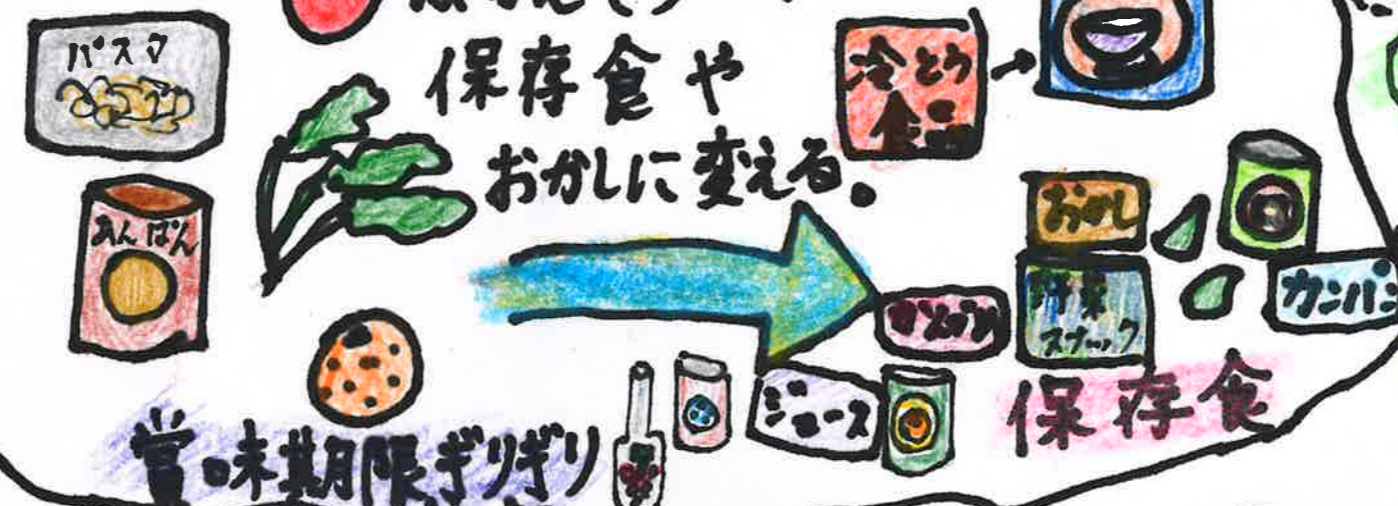 パスタ
保存食や
おかしに変える。
冷とう
食品
あんぱん
おかし
野菜
スナック
カンパン
ジュース
保存食
賞味期限ぎりぎり